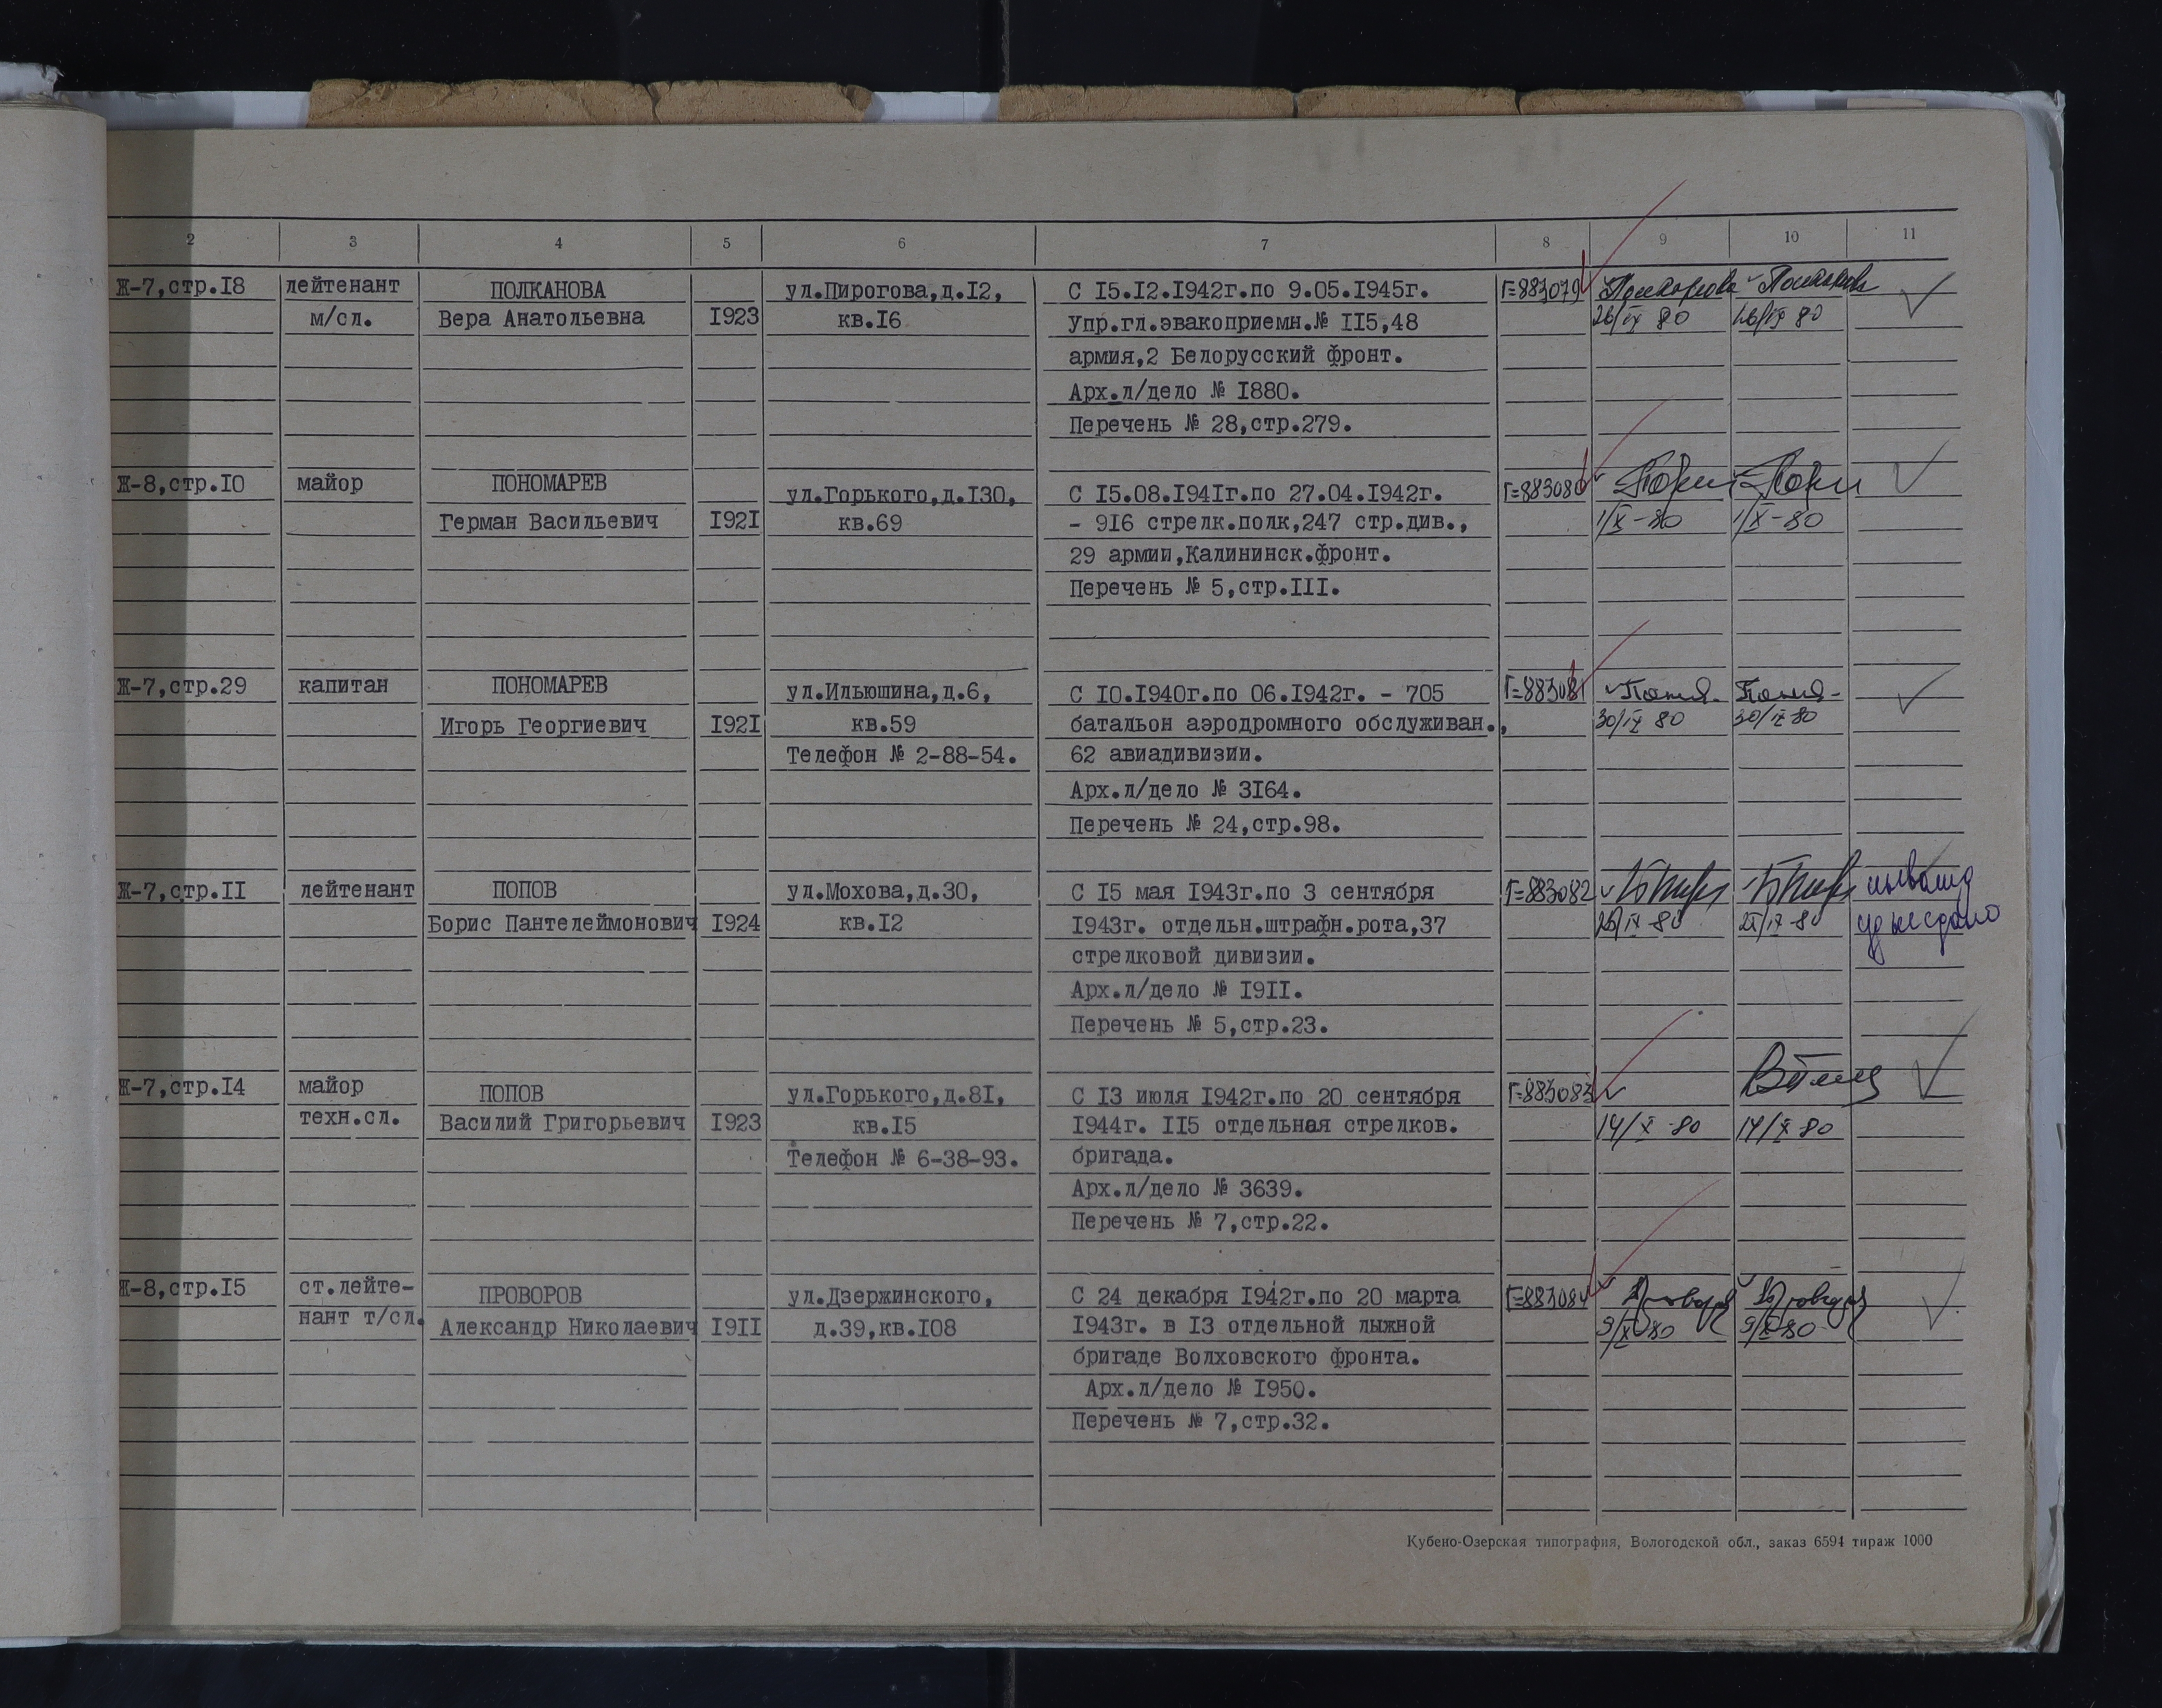 2 3 4 5 6 7 8 9 10 11
Ж-7,стр.I8 лейтенант ПОЛКАНОВА ул.Пирогова,д.I2, С I5.I2.I942г.по 9.05.I945г. Г=883079
м/сл. Вера Анатольевна I923 кв.I6 Упр.гл.эвакоприемн.№ II5,48 26/IX 80 26/IX 80
армия,2 Белорусский фронт.
Арх.л/дело № I880.
Перечень № 28,стр.279.
Ж-8,стр.I0 майор ПОНОМАРЕВ ул.Горького,д.I30, С I5.08.I94Iг.по 27.04.I942г. Г=883080
Герман Васильевич I92I кв.69 - 9I6 стрелк.полк,247 стр.див., 1/X-80 1/X-80
29 армии,Калининск.фронт.
Перечень № 5,стр.III.
Ж-7,стр.29 капитан ПОНОМАРЕВ ул.Ильюшина,д.6, С I0.I940г.по 06.I942г. - 705 Г=883081
Игорь Георгиевич I92I кв.59 батальон аэродромного обслуживан., 30/IX 80 30/IX 80
Телефон № 2-88-54. 62 авиадивизии.
Арх.л/дело № 3I64.
Перечень № 24,стр.98.
Ж-7,стр.II лейтенант ПОПОВ ул.Мохова,д.30, С I5 мая I943г.по 3 сентября Г=883082
Борис Пантелеймонович I924 кв.I2 I943г. отдельн.штрафн.рота,37
стрелковой дивизии.
Арх.л/дело № I9II.
Перечень № 5,стр.23.
Ж-7,стр.I4 майор ПОПОВ ул.Горького,д.8I, С I3 июля I942г.по 20 сентября Г=883083
техн.сл. Василий Григорьевич I923 кв.I5 I944г. II5 отдельная стрелков. 14/X-80 14/X 80
Телефон № 6-38-93. бригада.
Арх.л/дело № 3639.
Перечень № 7,стр.22.
Ж-8,стр.I5 ст.лейте- ПРОВОРОВ ул.Дзержинского, С 24 декабря I942г.по 20 марта Г=883084
нант т/сл. Александр Николаевич I9II д.39,кв.I08 I943г. в I3 отдельной лыжной 9/X-80 9/X-80
бригаде Волховского фронта.
Арх.л/дело № I950.
Перечень № 7,стр.32.
Кубено-Озерская типография, Вологодской обл., заказ 6594 тираж 1000